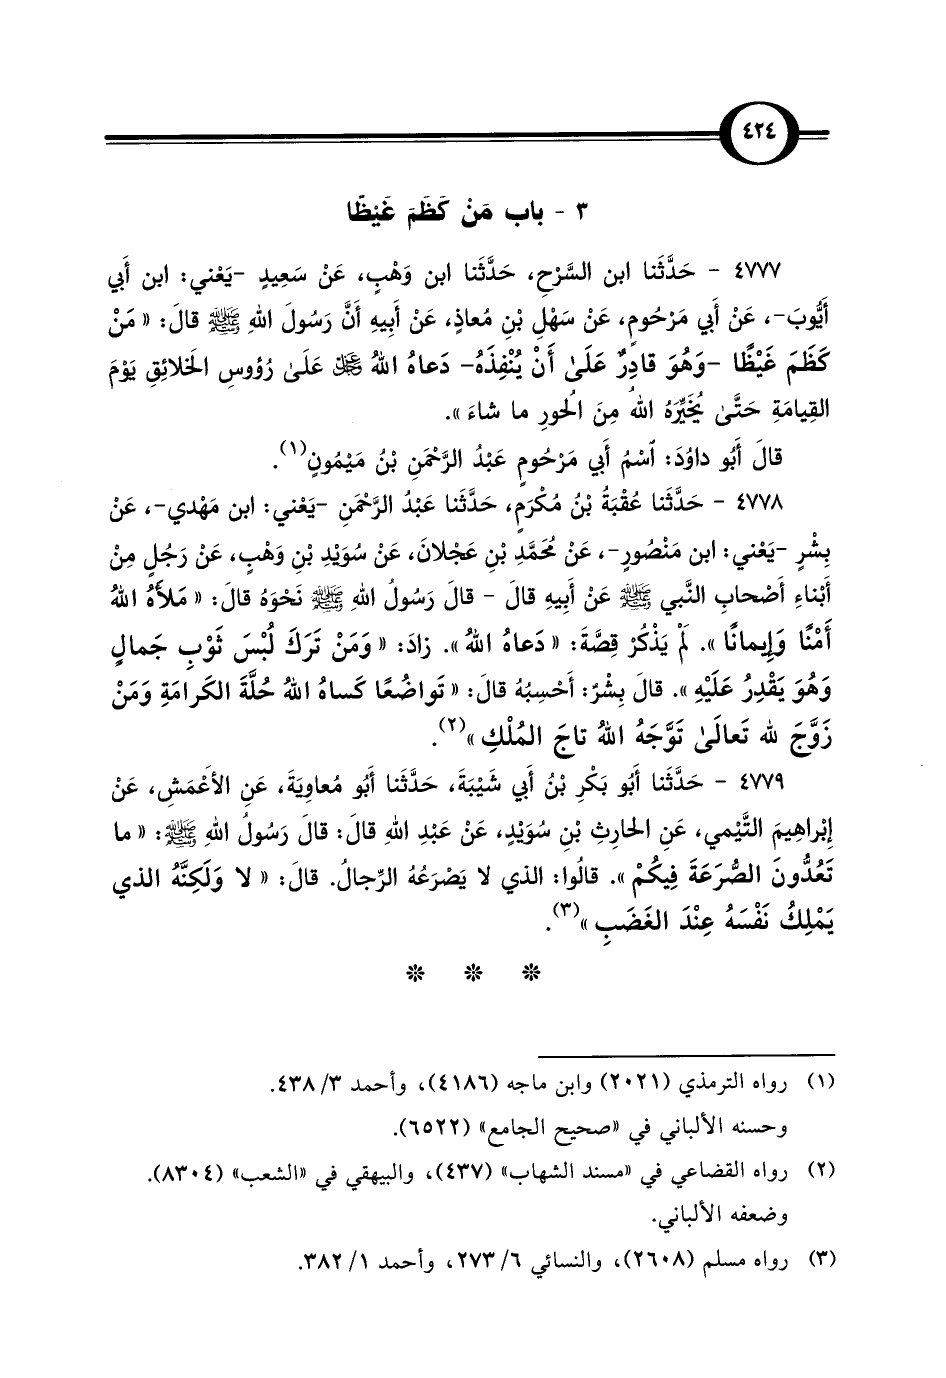 ٤٢٤
٣ - باب مَنْ كَظَمَ غَيْظًا
٤٧٧٧ - حَدَّثَنا ابن السَّرْحِ، حَدَّثَنا ابن وَهْبٍ، عَنْ سَعِيدٍ -يَعْني: ابن أَبي
أَيُّوبَ-، عَنْ أَبي مَرْحُومٍ، عَنْ سَهْلِ بْنِ مُعاذٍ، عَنْ أَبِيهِ أَنَّ رَسُولَ اللهِ ﷺ قالَ: « مَنْ
كَظَمَ غَيْظًا -وَهُوَ قادِرٌ عَلَىٰ أَنْ يُنْفِذَهُ- دَعاهُ اللهُ ﷻ عَلَىٰ رُؤُوسِ الخَلائِقِ يَوْمَ
القِيامَةِ حَتَّىٰ يُخَيِّرَهُ اللهُ مِنَ الُحورِ ما شاءَ ».
قالَ أَبُو داوُدَ: ٱسْمُ أَبي مَرْحُومٍ عَبْدُ الرَّحْمَنِ بْنُ مَيْمُونٍ(١).
٤٧٧٨ - حَدَّثَنا عُقْبَةُ بْنُ مُكْرَمٍ، حَدَّثَنا عَبْدُ الرَّحْمَنِ -يَعْني: ابن مَهْدي-، عَنْ
بِشْرٍ -يَعْني: ابن مَنْصُورٍ-، عَنْ مُحَمَّدِ بْنِ عَجْلانَ، عَنْ سُوَيْدِ بْنِ وَهْبٍ، عَنْ رَجُلٍ مِنْ
أَبْناءِ أَصْحابِ النَّبي ﷺ عَنْ أَبِيهِ قالَ - قالَ رَسُولُ اللهِ ﷺ نَحْوَهُ قالَ: « مَلأَهُ اللهُ
أَمْنًا وَإِيمانًا ». لَمْ يَذْكُرْ قِصَّةَ: « دَعاهُ اللهُ ». زادَ: « وَمَنْ تَرَكَ لُبْسَ ثَوْبِ جَمالٍ
وَهُوَ يَقْدِرُ عَلَيْهِ ». قالَ بِشْرٌ: أَحْسِبُهُ قالَ: « تَواضُعًا كَساهُ اللهُ حُلَّةَ الكَرامَةِ وَمَنْ
زَوَّجَ لله تَعالَىٰ تَوَّجَهُ اللهُ تاجَ المُلْكِ »(٢).
٤٧٧٩ - حَدَّثَنا أَبُو بَكْرِ بْنُ أَبي شَيْبَةَ، حَدَّثَنا أَبُو مُعاوِيَةَ، عَنِ الأَعْمَشِ، عَنْ
إِبْراهِيمَ التَّيْمي، عَنِ الحارِثِ بْنِ سُوَيْدٍ، عَنْ عَبْدِ اللهِ قالَ: قالَ رَسُولُ اللهِ ﷺ: « ما
تَعُدُّونَ الصُّرَعَةَ فِيكُمْ ». قالُوا: الذي لا يَصْرَعُهُ الرِّجالُ. قالَ: « لا وَلَكِنَّهُ الذي
يَمْلِكُ نَفْسَهُ عِنْدَ الغَضَبِ »(٣).
* * *
(١) رواه الترمذي (٢٠٢١) وابن ماجه (٤١٨٦)، وأحمد ٣/ ٤٣٨.
وحسنه الألباني في «صحيح الجامع» (٦٥٢٢).
(٢) رواه القضاعي في «مسند الشهاب» (٤٣٧)، والبيهقي في «الشعب» (٨٣٠٤).
وضعفه الألباني.
(٣) رواه مسلم (٢٦٠٨)، والنسائي ٦/ ٢٧٣، وأحمد ١/ ٣٨٢.